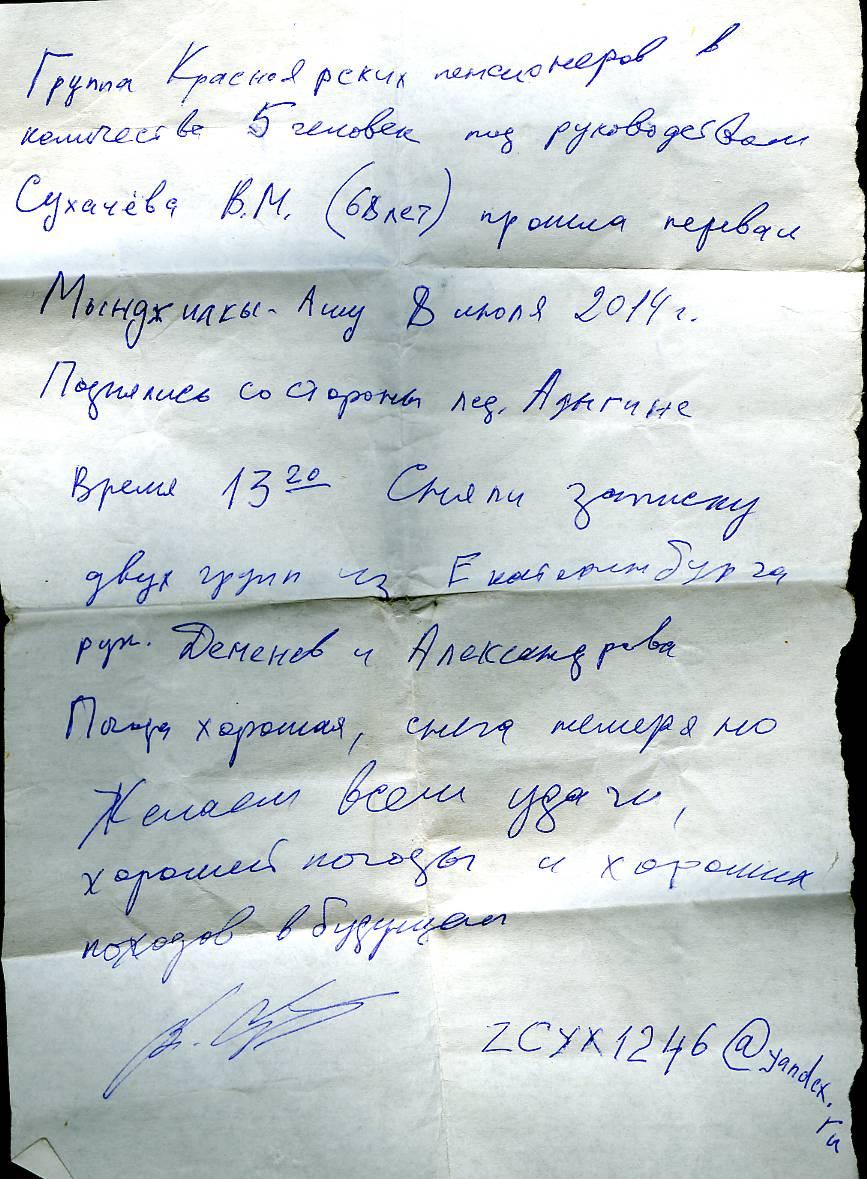 Группа Красноярских пенсионеров в
количестве 5 человек под руководством
Сухачёва В.М. (68 лет) прошла перевал
Мынджилкы-Ашу 8 июля 2014 г.
Поднялись со стороны лед. Адыгине
Время 13 20 Сняли записку
двух групп из Екатеринбурга
рук. Деменев и Александрова
Погода хорошая, снега немеряно
Желаем всем удачи,
хорошей погоды и хороших
походов в будущем
zcyx1246@yandex.ru